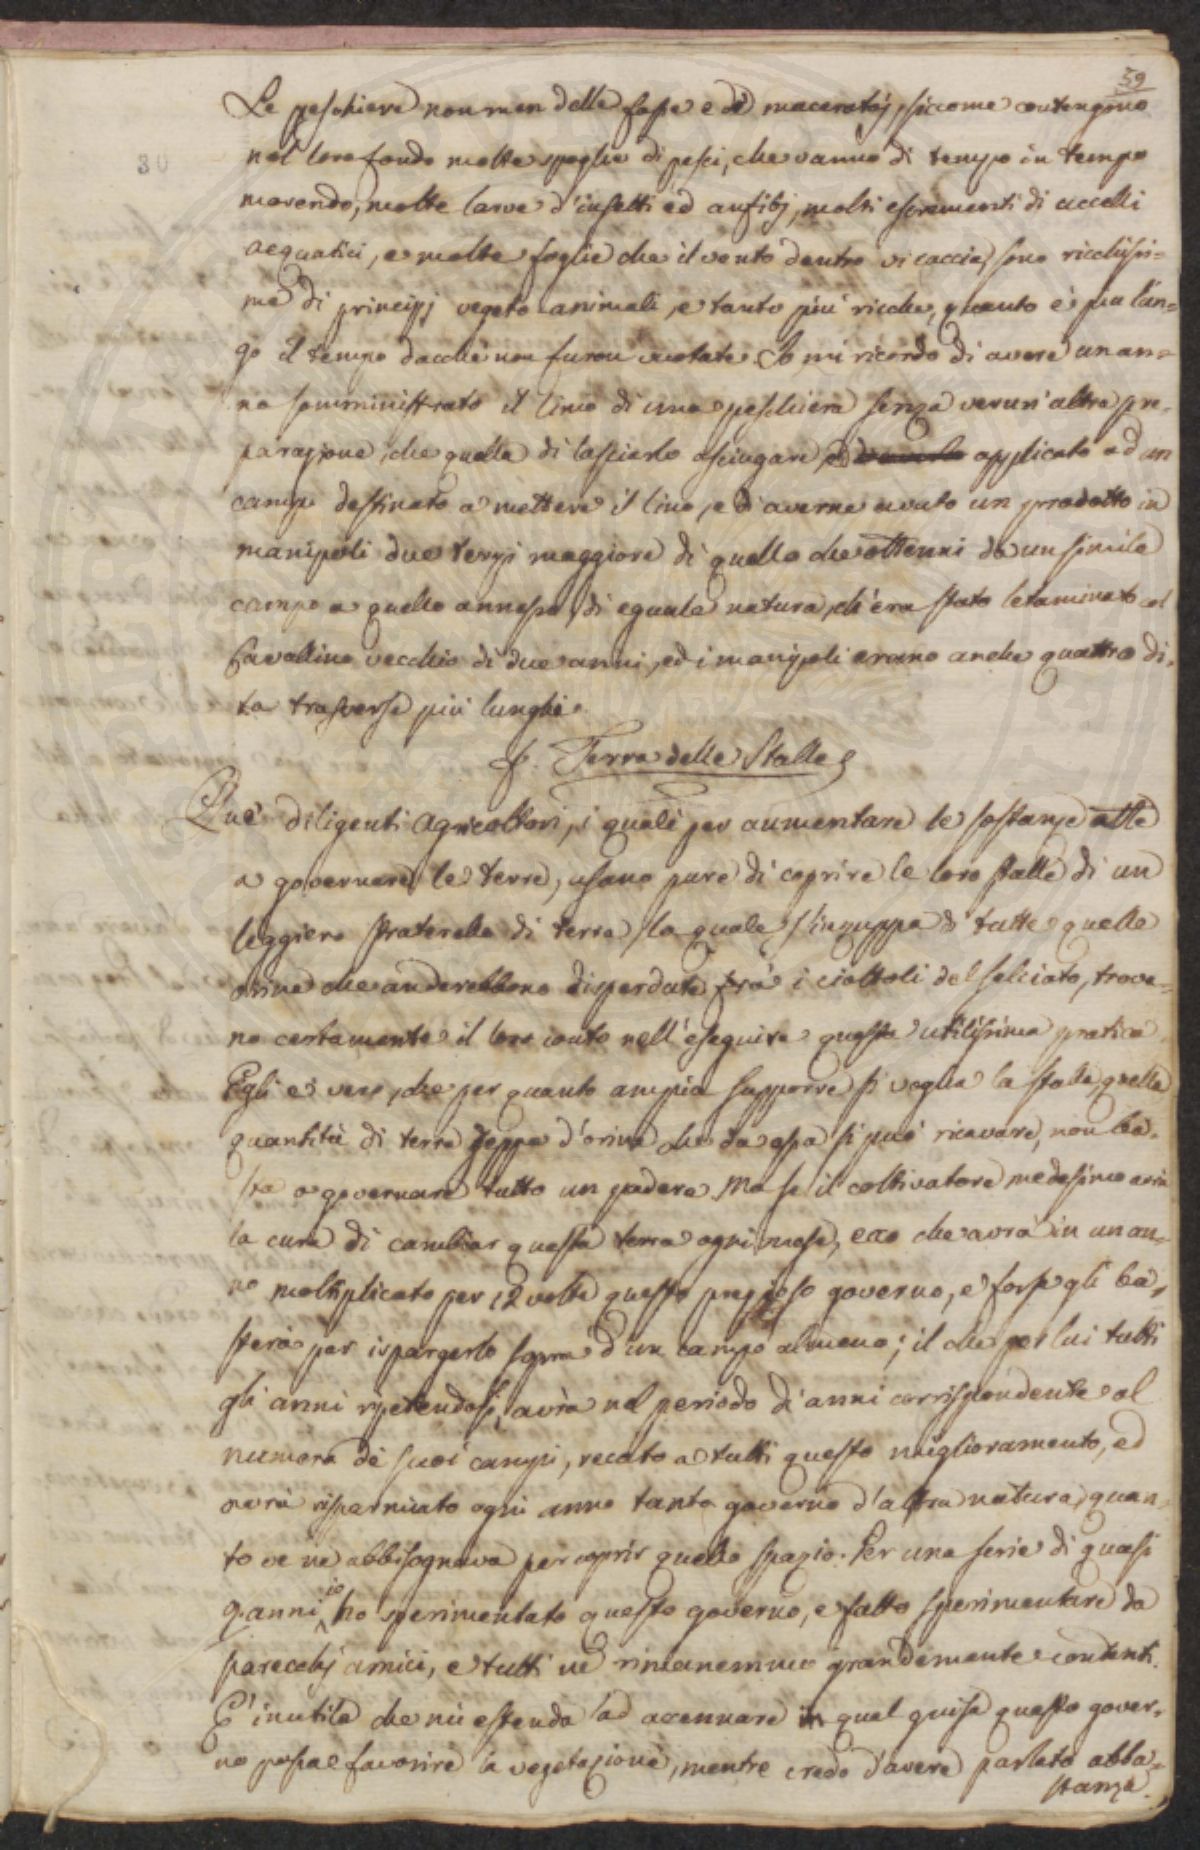 59
30
Le peschiere non men delle fosse e di maceratoj, siccome contengono
nel loro fondo molte spoglie di pesci, che vanno di tempo in tempo
morendo, molte larve d'insetti ed anfibj, molti escrementi di uccelli
acquatici, e molte foglie che il vento dentro vi caccia, sono ricchissi=
me di principj vegeto animali, e tanto più ricche, quanto è più lun=
go il tempo dacchè non furon vuotate. Io mi ricordo di avere un an=
no somministrato il limo di una peschiera senza verun'altra pre=
parazione, che quella di lasciarlo asciugare, ed applicato ad un
campo destinato a mettere il lino, e di averne avuto un prodotto in
manipoli due terzi maggiore di quello che ottenni da un simile
campo a quello annesso, di eguale natura, ch'era stato letaminato col
Cavallino vecchio di due anni, ed i manipoli erano anche quattro di=
ta trasverse più lunghi.
f. Terra delle Stalle
Que' diligenti Agricoltori, i quali per aumentare le sostanze atte
a governare le terre, usano pure di coprire le loro stalle di un
leggiero straterello di terra, la quale s'inzuppa di tutte quelle
orine che anderebbono disperdute frà i ciottoli del selciato, trova=
no certamente il loro conto nell'eseguire questa utilissima pratica.
Egli è vero, che per quanto ampia supporre si voglia la stalla, quella
quantità di terra zeppa d'orina che da essa si può ricavare, non ba=
sta a governare tutto un podere. Ma se il coltivatore medesimo avrà
la cura di cambiar questa terra ogni mese, ecco che avrà in un an=
no moltiplicato per 12 volte questo prezioso governo, e forse gli ba=
sterà per ispargerlo sopra d'un campo almeno; il che per lui tutti
gli anni ripetendosi, avrà nel periodo d'anni corrispondente al
numero de' suoi campi, recato a tutti questo miglioramento, ed
avrà risparmiato ogni anno tanto governo d'altra natura, quan=
to ve ne abbisognava per coprir quello spazio. Per una serie di quasi
9. anni io ho sperimentato questo governo, e fatto sperimentare da
parecchj amici, e tutti ne rimanemmo grandemente contenti.
E' inutile che mi estenda ad accennare in qual guisa questo gover=
no possa favorire la vegetazione, mentre credo d'avere parlato abba=
stanza.